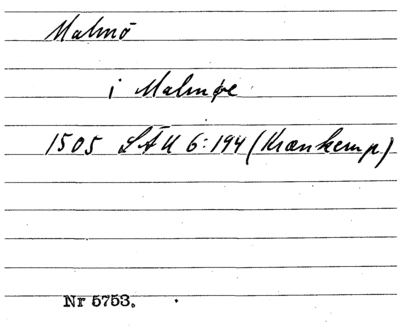 Malmö
i Malmøe
1505 LÄU 6:194 (Krankemp.)
Nr 5753.